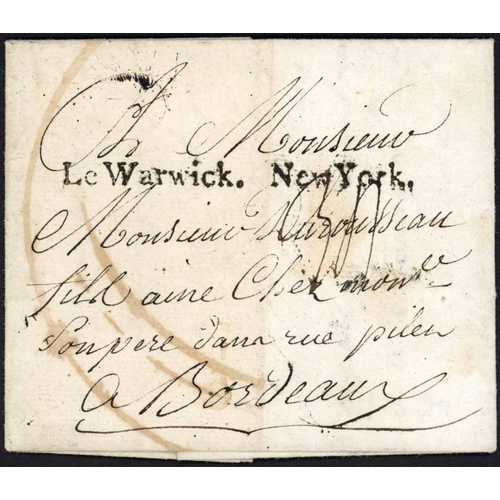 A Monsieur
Le Warwick. New York.
Monsieur Durousseau
fils aine Chez mon
Son pere dans rue
a Bordeaux